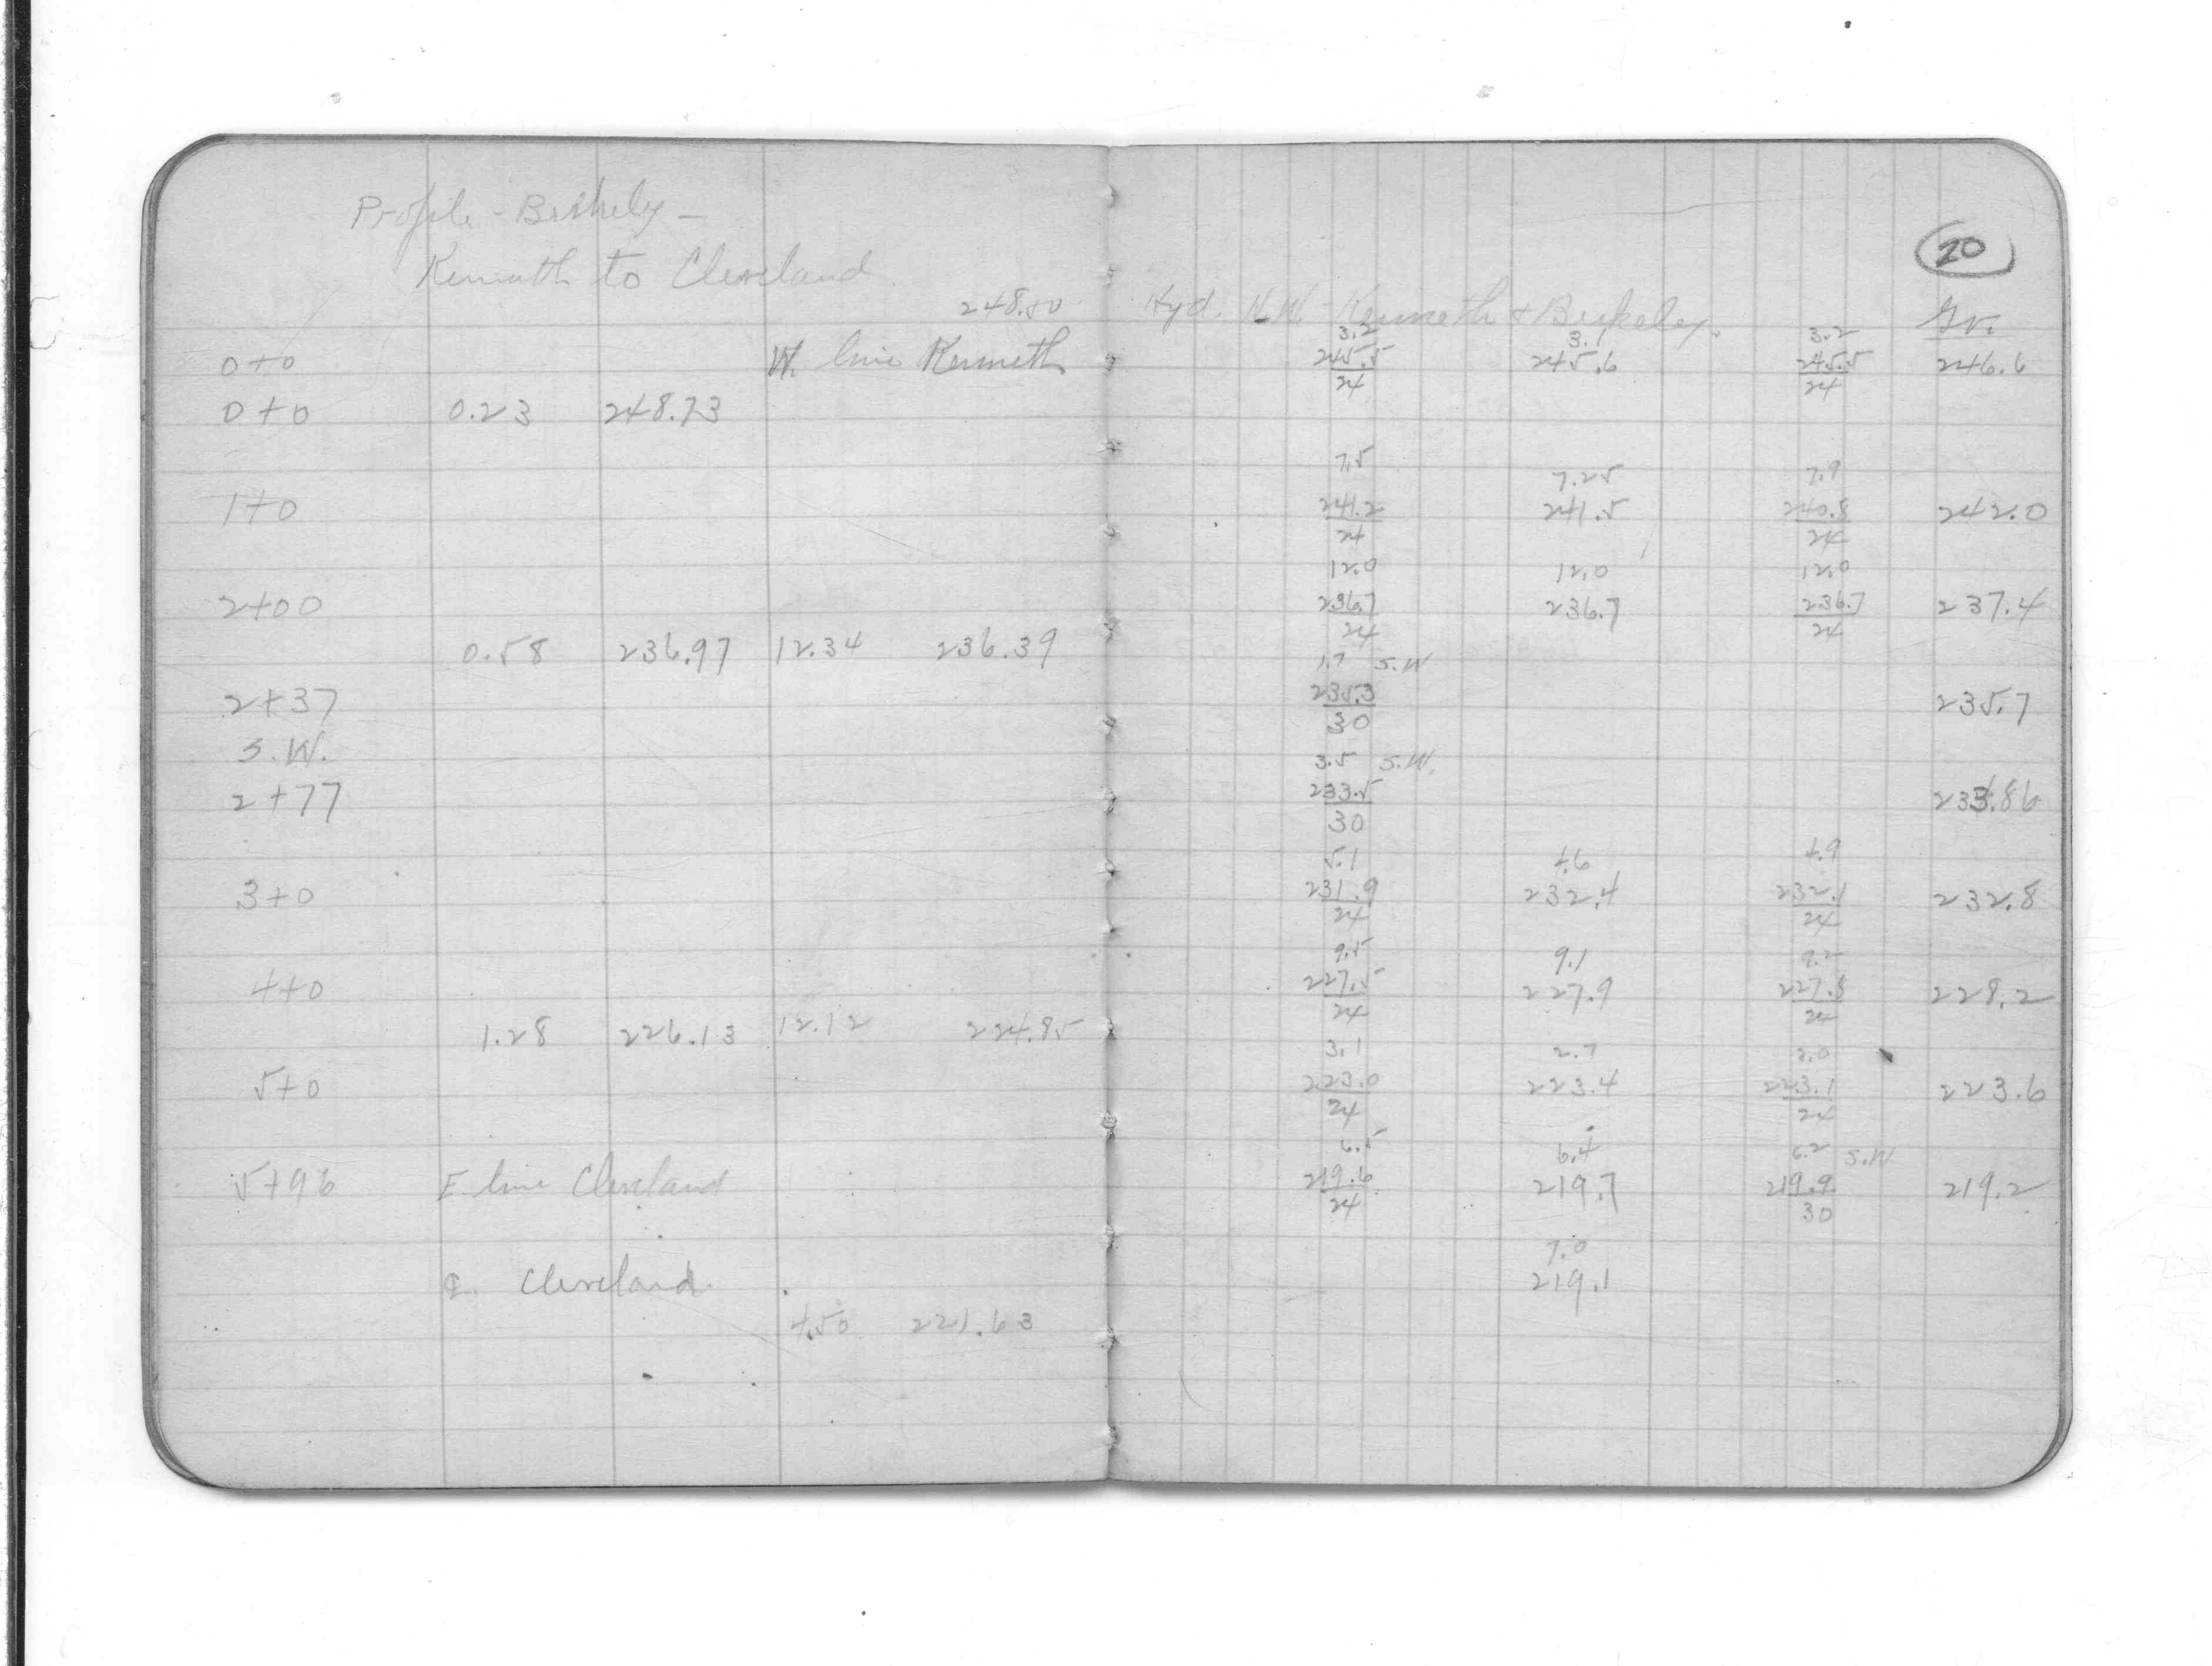 Profile - Berkeley -
Kenneth to Cleveland
20
248.50 Hyd. N.W. Kenneth + Berkeley. Gr.
3.2 3.1 3.2
0+0 W. line Kenneth 245.5 245.6 245.5 246.6
24 24
0+0 0.23 248.73
7.5 7.25 7.9
1+0 241.2 241.5 240.8 242.0
24 24
12.0 12.0 12.0
2+00 236.7 236.7 236.7 237.4
24 24
0.58 236.97 12.34 236.39
1.7 S.W
2+37 235.3 235.7
30
S.W.
3.5 S.W.
2+77 233.5 233.86
30
5.1 4.6 4.9
3+0 231.9 232.4 232.1 232.8
24 24
9.5 9.1 9.2
4+0 227.5 227.9 227.8 228.2
24 24
1.28 226.13 12.12 224.85
3.1 2.7 3.0
5+0 223.0 223.4 223.1 223.6
24 24
6.5 6.4 6.2 S.W
5+96 E line Cleveland 219.6 219.7 219.9 219.2
24 30
7.0
¢ Cleveland. 219.1
4.50 221.63